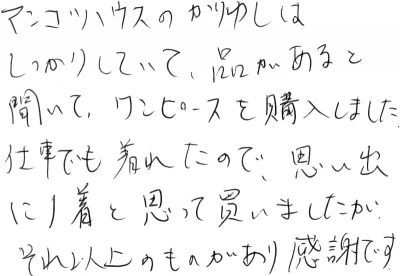 マンゴハウスのかりゆしは
しっかりしていて、品があると
聞いて、ワンピースを購入しました。
仕事でも着れたので、思い出
に1着と思って買いましたが、
それ以上のものがあり感謝です